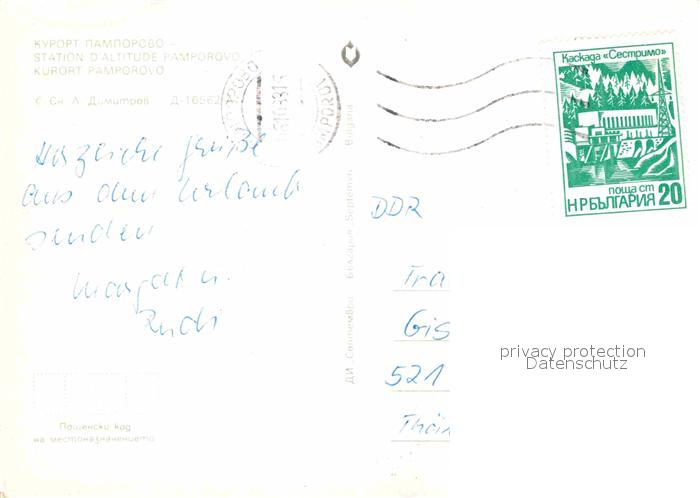 КУРОРТ ПАМПОРОВО -
STATION D'ALTITUDE PAMPOROVO
KURORT PAMPOROVO
© Сн. Л. Димитров Д-16562
Herzliche Grüße
aus dem Urlaub
senden
Margot u.
Rudi
Пощенски код
на местоназначението
ДИ „Септември“ България „Septemvri“ Bulgaria
Каскада «Сестримо»
поща ст
НР БЪЛГАРИЯ 20
DDR
Gis
521
privacy protection
Datenschutz